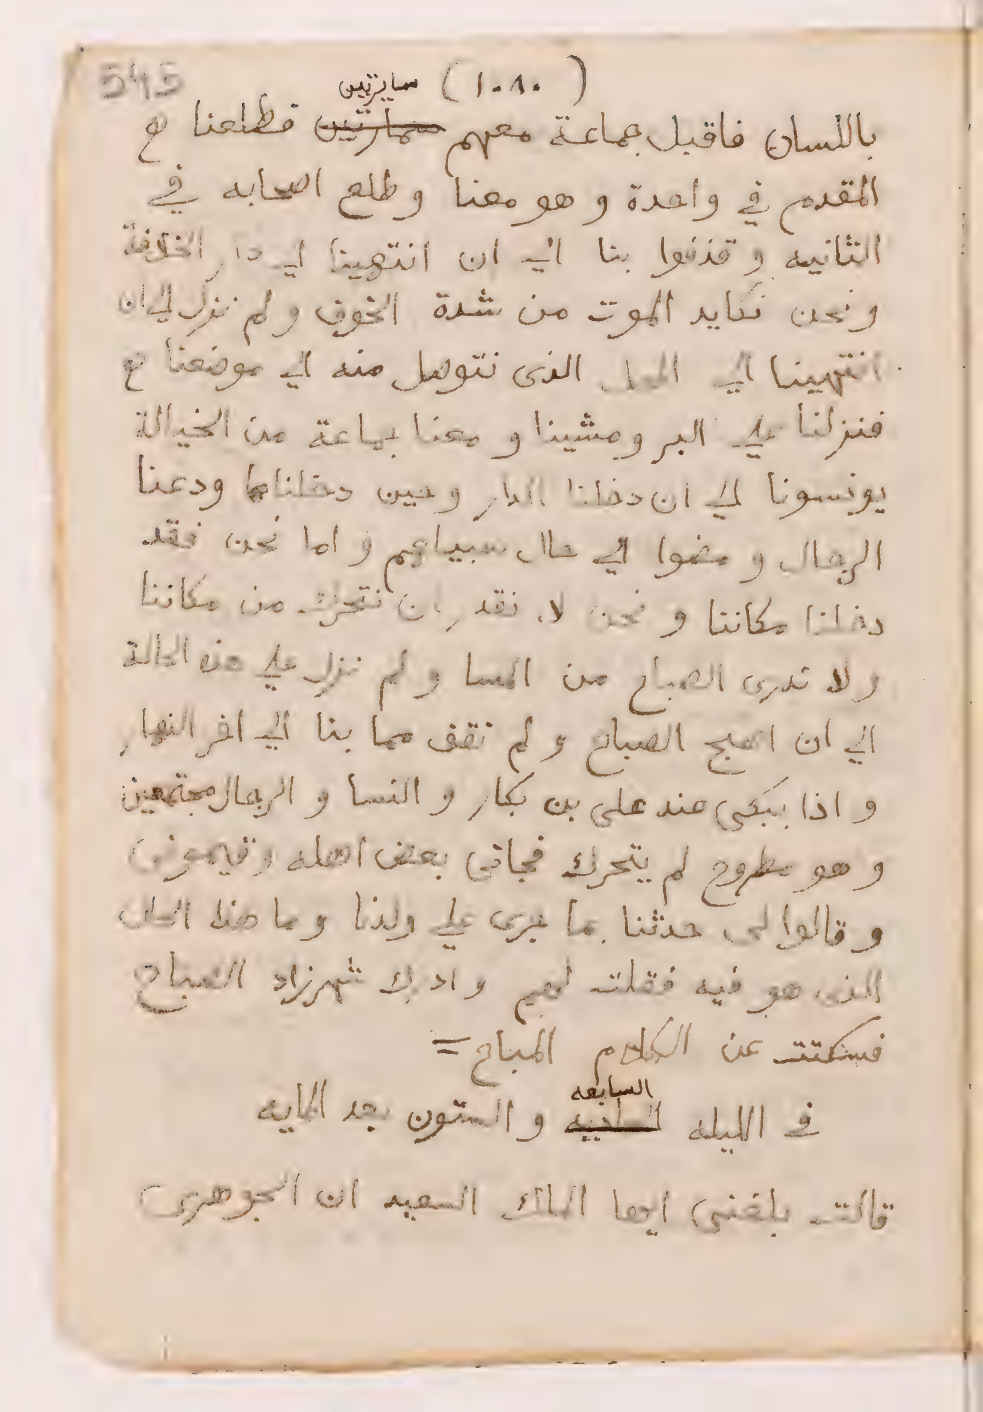 545
(١٠٨٠)
سايرتين
باللسان فاقبل جماعة معهم سمارتين فطلعنا مع
المقدم في واحدة و هو معنا و طلع اصحابه في
الثانيه و قذفوا بنا الي ان انتهينا الي دار الخلافة
و نحن نكايد الموت من شدة الخوف و لم نزل الي ان
انتهينا الي المحل الذى نتوصل منه الي موضعنا
فنزلنا علي البر و مشينا و معنا جماعة من الخيالة
يونسونا الي ان دخلنا الدار و حين دخلناها ودعنا
الرجال و مضوا الي حال سبيلهم و اما نحن فقد
دخلنا مكاننا و نحن لا نقدر ان نتحرك من مكاننا
ولا ندرى الصباح من المسا و لم نزل علي هذه الحالة
الي ان اصبح الصباح و لم نقف مما بنا الي اخر النهار
و اذا ببكى عند على بن بكار و النسا و الرجال مجتمعين
و هو مطروح لم يتحرك فجانى بعض اهله و قيمونى
و قالوا لى حدثنا بما جرى علي ولدنا و ما هذا الحال
الذى هو فيه فقلت لهم و ادرك شهرزاد الصباح
فسكتت عن الكلام المباح =
السابعه
في الليله و الستون بعد المايه
قالت بلغنى ايها الملك السعيد ان الجوهرى